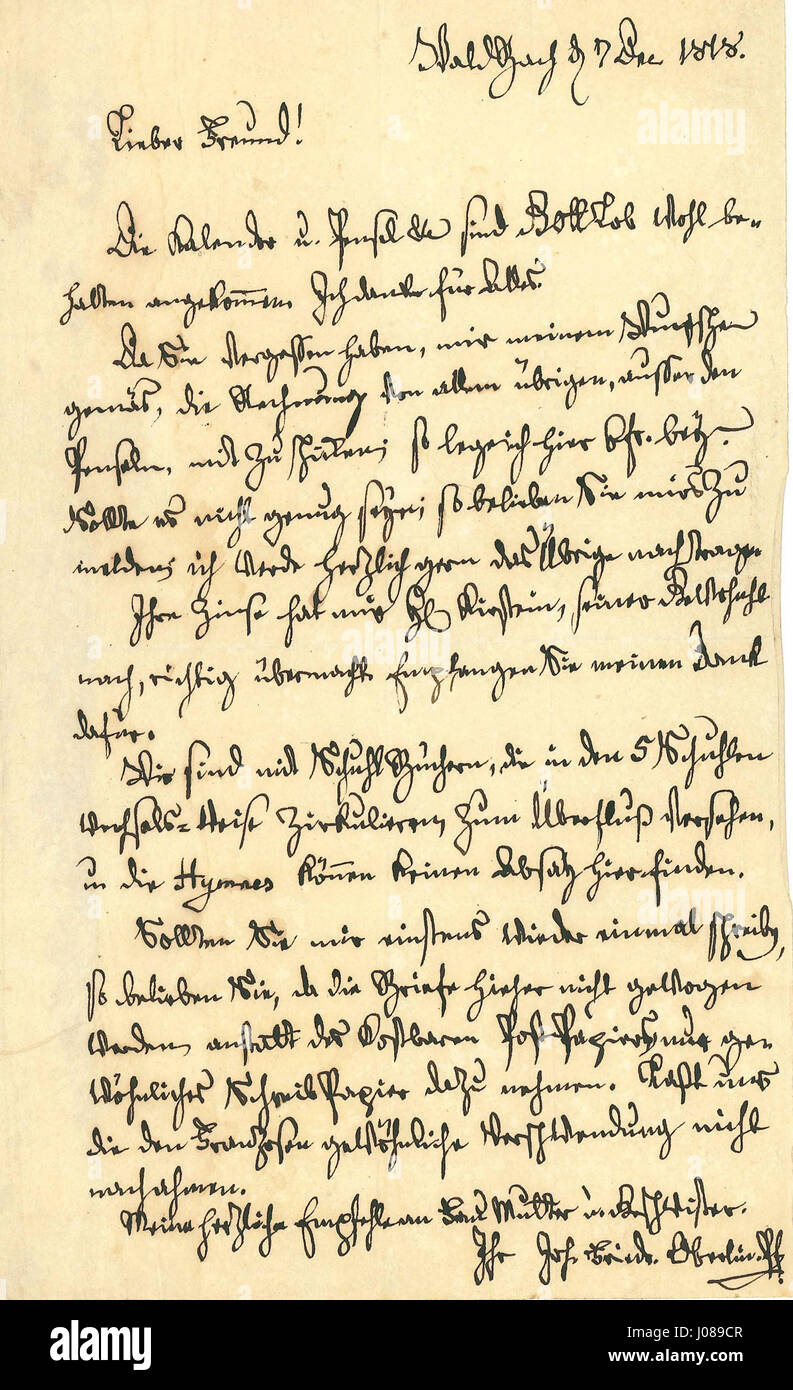 Waldbach d 7 Dec 1818.
Lieber Freund!
Die Kalender u. Pensel &c sind Gott Lob wohl be-
halten angekommen. Ich danke für Alles.
Da Sie vergessen haben, mir meinem Wunsche
gemäs, die Rechnung von allem übrigen, ausser den
Penseln, mit zu schiken; so lege ich hier 6 fr. bey.
Sollte es nicht genug seyn; so belieben Sie mirs zu
melden; ich werde herzlich gern das Übrige nachtragen
Ihre Zinse hat mir H Kirstein, seiner Gewohnheit
nach, richtig übermacht. Empfangen Sie meinen Dank
dafür.
Wir sind mit Schuhl Büchern, die in den 5 Schuhlen
wechsels-Weise zirkulieren, zum Überfluß versehen,
u die Hymnes können keinen Absatz hier finden.
Sollten Sie mir einstens wieder einmal schreiben,
so belieben Sie, da die Briefe hieher nicht gewogen
werden, anstatt des kostbaren Post Papiers nur ge-
wöhnliches Schreib Papier dazu nehmen. Laßt uns
die den Franzosen gewöhnliche Verschwendung nicht
nachahmen.
Meine herzliche Empfehle an Frau Mutter u. Geschwister.
Ihr Joh. Friedr. Oberlin. Pf.
alamy
Image ID: J089CR
www.alamy.com